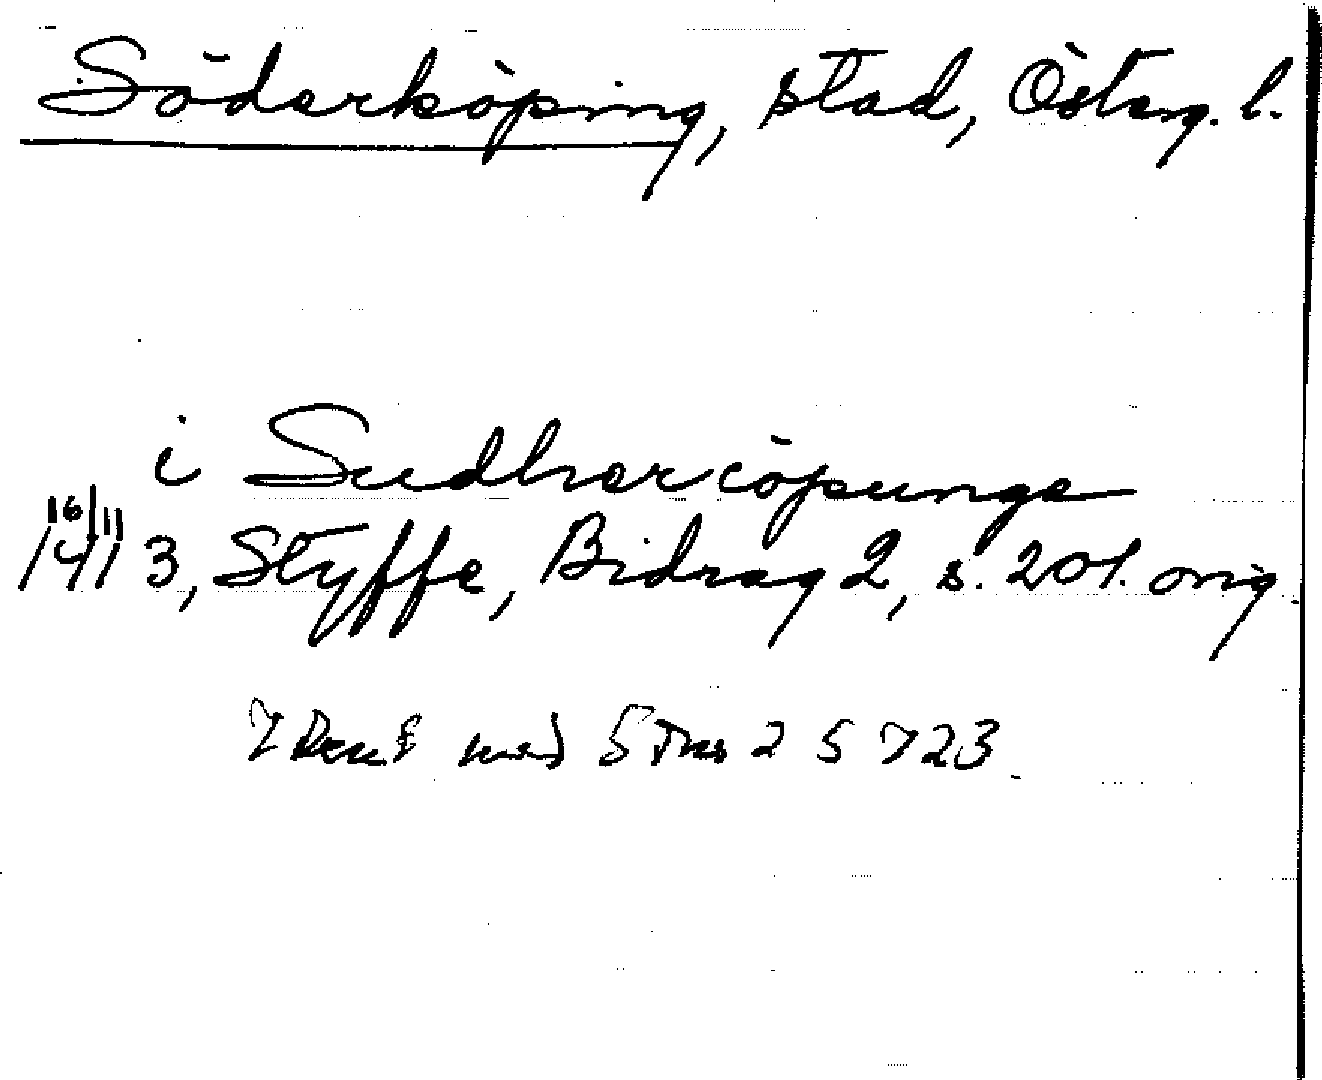 Söderköping, stad, Österg. l.
i Sudhercöpunge
16/11
1413, Styffe, Bidrag 2, s. 201. orig.
med 2 5 723